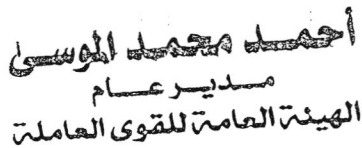 أحمد محمد الموسى
مدير عام
الهيئة العامة للقوى العاملة